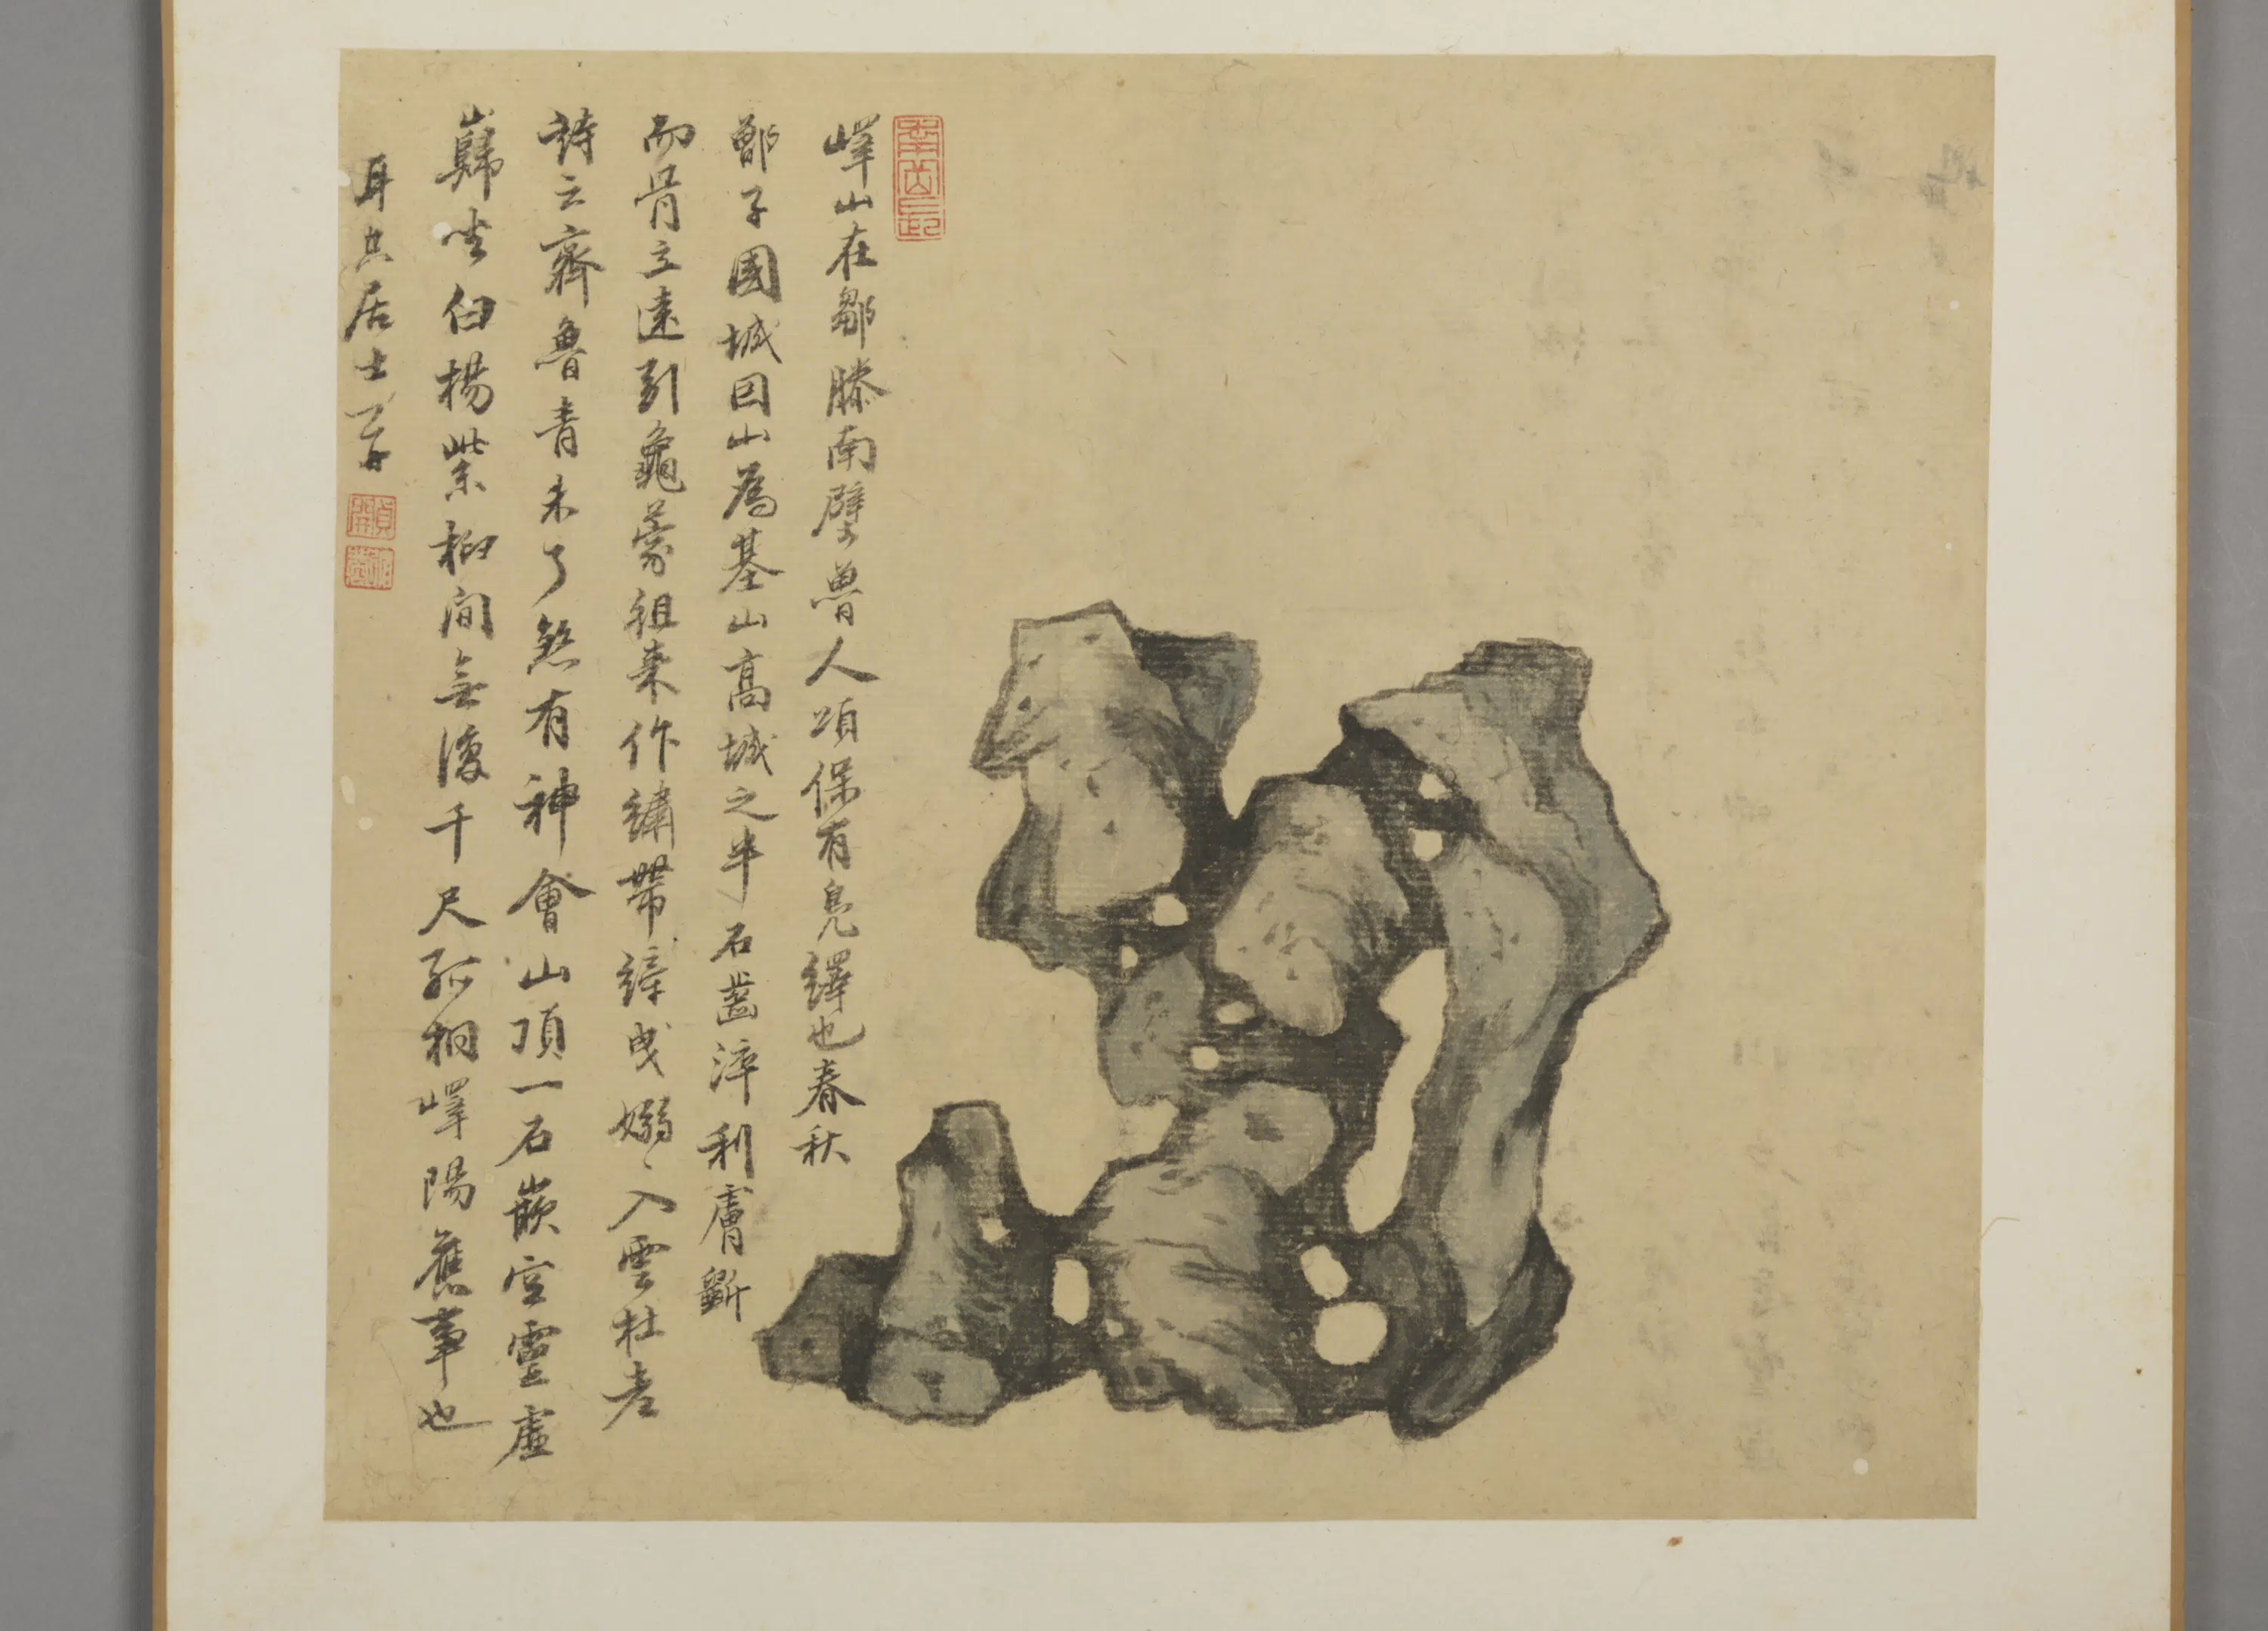 嶧山在鄒滕南壁魯人頌保有鳧繹也春秋
鄫子國城因山為基山高城之半石齒淬利膚斷
而骨立遠引龜蒙徂來作繡帶縴曳嫋嫋入雲杜老
詩云齊魯青未了煞有神會山頂一石嵌空靈虛
巋坐白楊紫柳間無復千尺孤桐嶧陽舊事也
居士